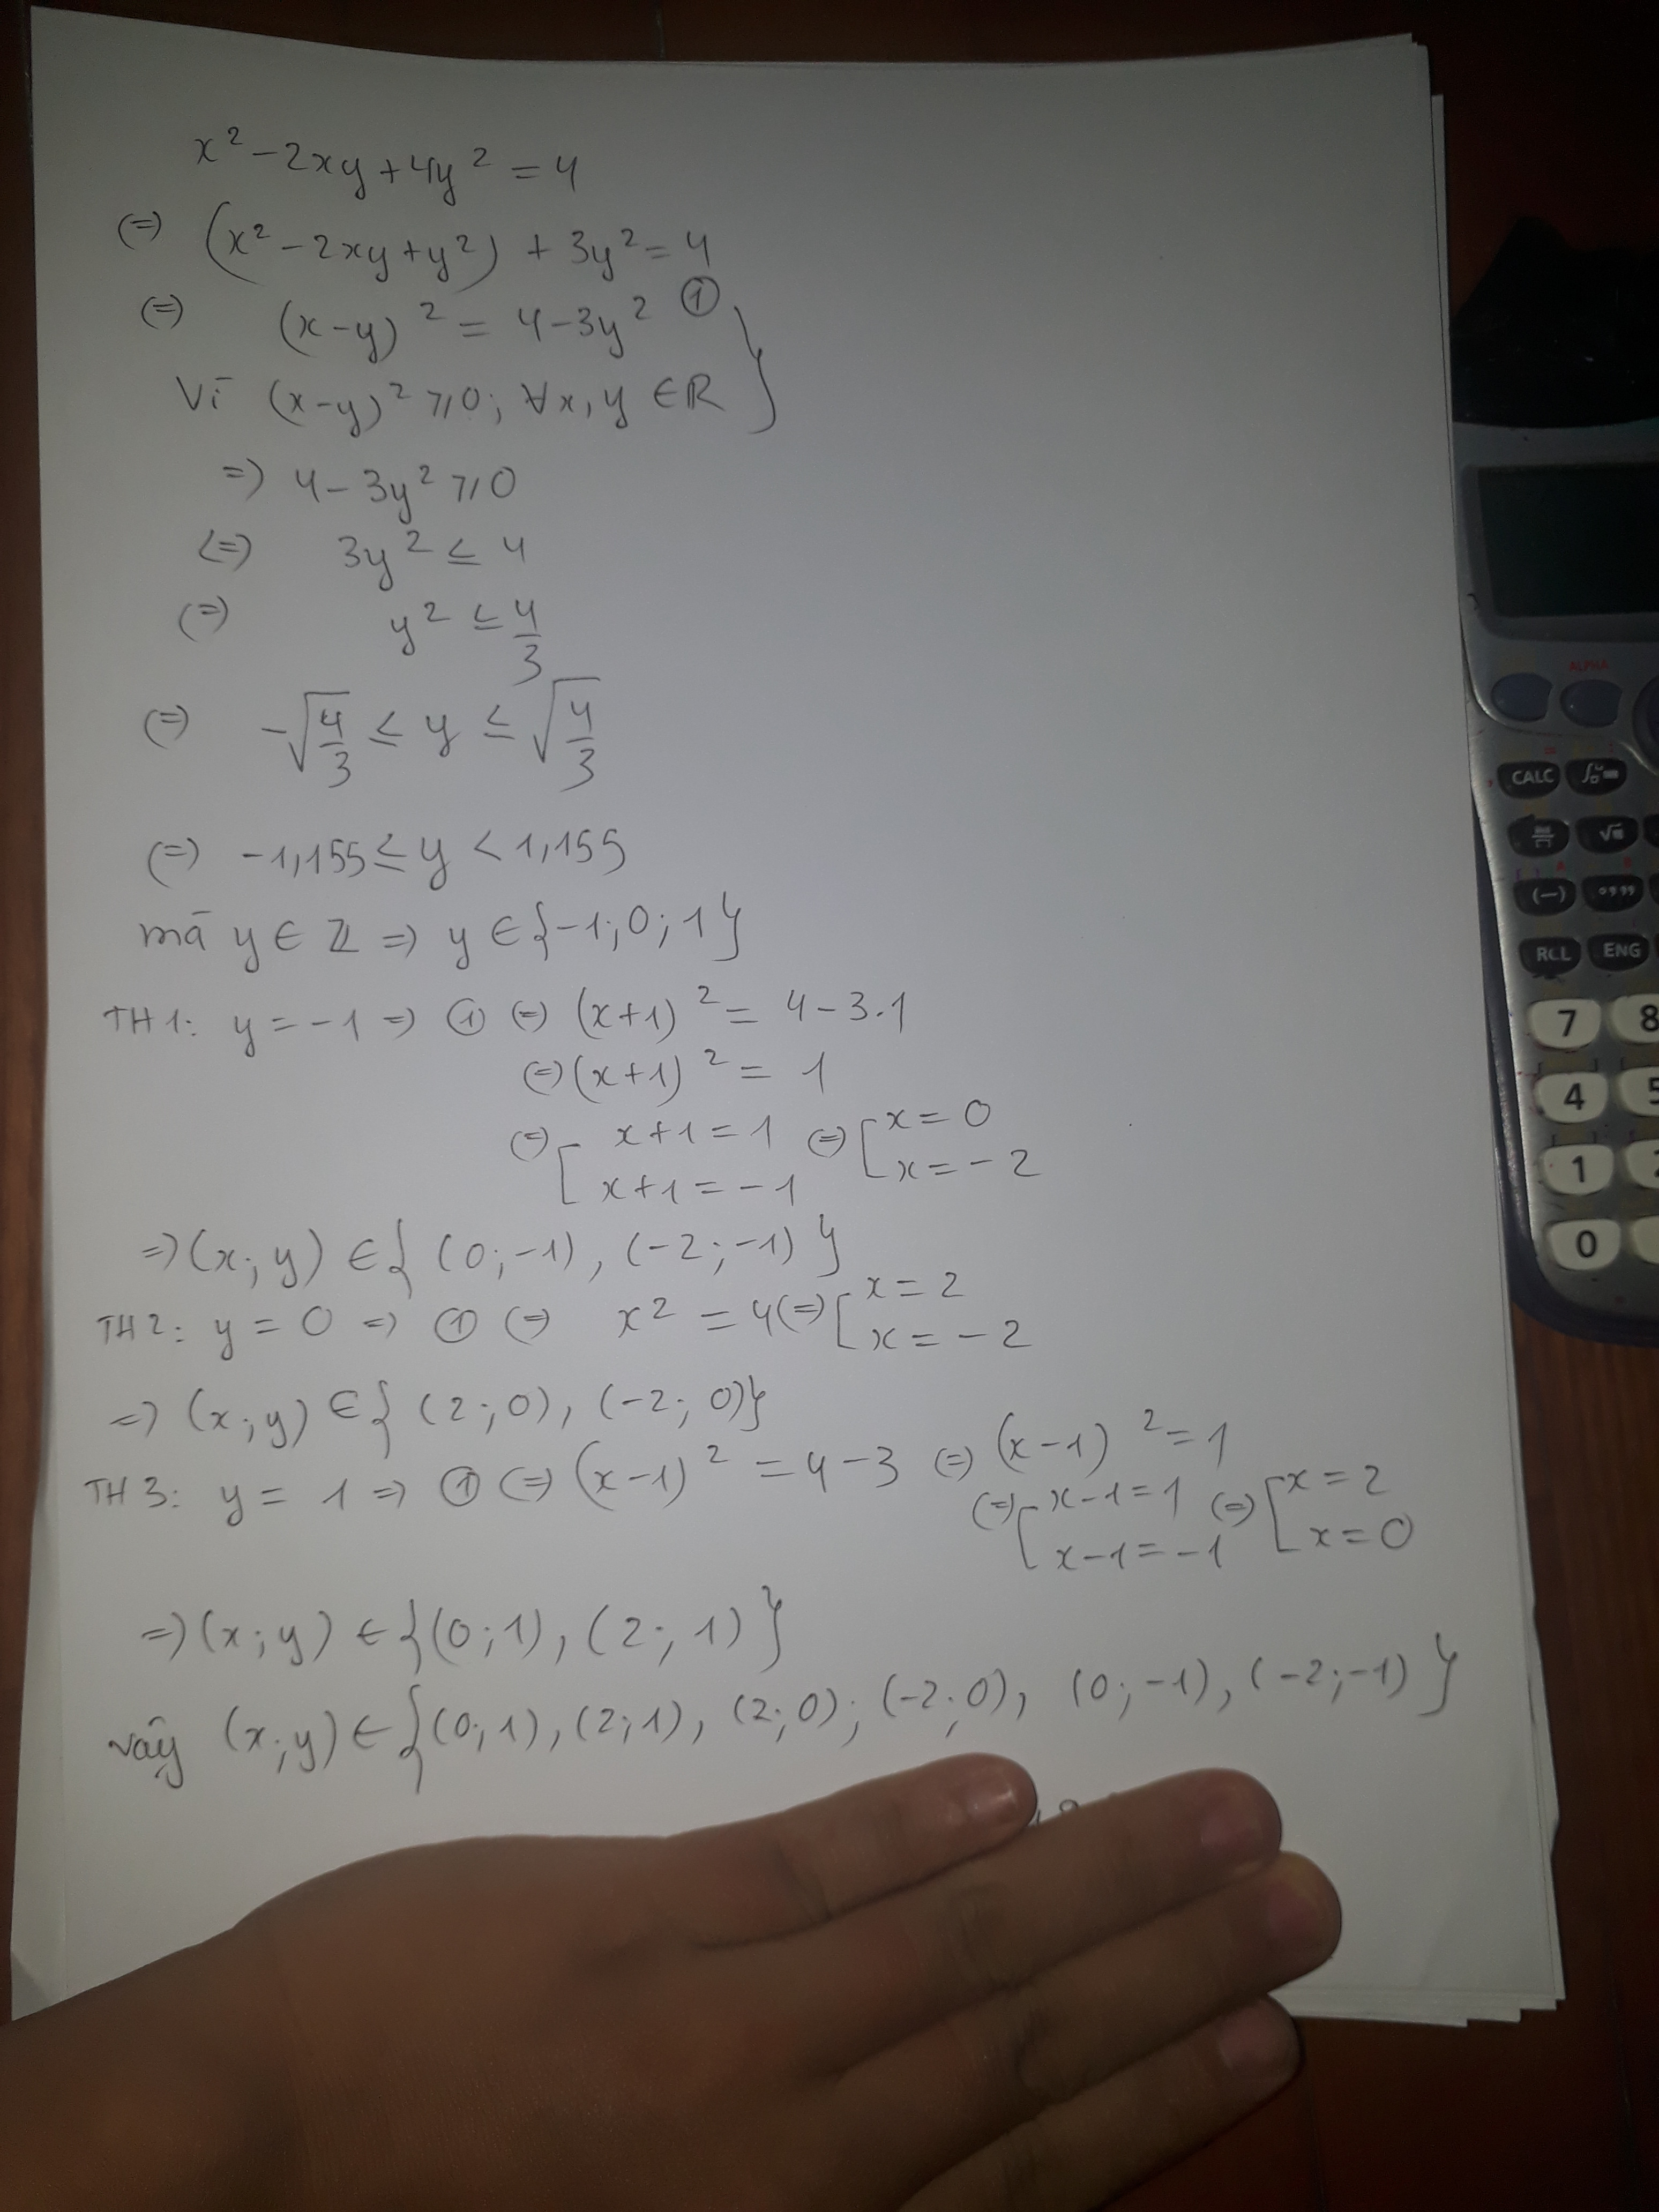 x² - 2xy + 4y² = 4
(=) (x² - 2xy + y²) + 3y² = 4
(=) (x - y)² = 4 - 3y² ①
Vì (x - y)² ≥ 0; ∀x, y ∈ R
=> 4 - 3y² ≥ 0
<=> 3y² ≤ 4
(=) y² ≤ 4/3
(=) -√(4/3) ≤ y ≤ √(4/3)
(=) -1,155 ≤ y < 1,155
mà y ∈ Z => y ∈ {-1; 0; 1}
TH1: y = -1 => ① (=) (x+1)² = 4 - 3.1
(=) (x+1)² = 1
(=) [ x+1 = 1 (=) [ x = 0
x+1 = -1 x = -2
=> (x; y) ∈ { (0; -1), (-2; -1) }
TH2: y = 0 => ① (=) x² = 4 (=) [ x = 2
x = -2
=> (x; y) ∈ { (2; 0), (-2; 0) }
TH3: y = 1 => ① (=) (x-1)² = 4 - 3 (=) (x-1)² = 1
(=) [ x-1 = 1 (=) [ x = 2
x-1 = -1 x = 0
=> (x; y) ∈ { (0; 1), (2; 1) }
vậy (x; y) ∈ { (0; 1), (2; 1), (2; 0); (-2; 0), (0; -1), (-2; -1) }
ALPHA
CALC
(−) °'"
RCL ENG
7 8
4 5
1 2
0